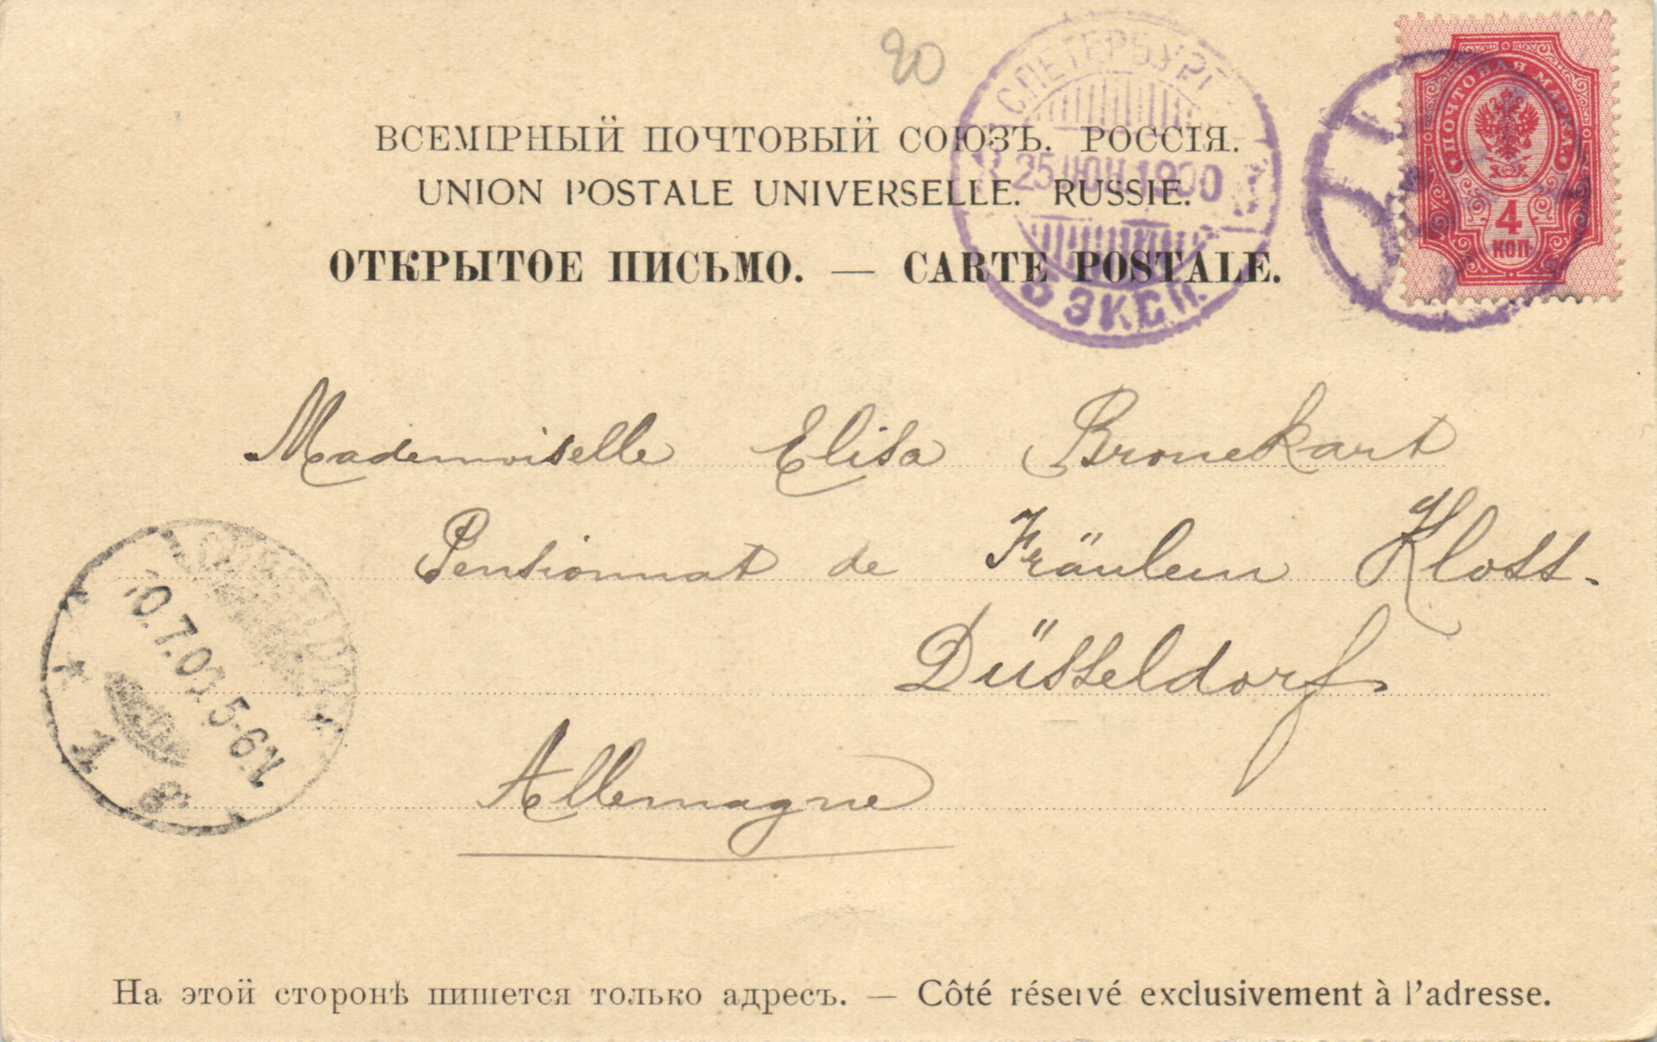 20
С.ПЕТЕРБУРГ
25 ІЮН 1900
5 ЭКСП.
ПОЧТОВАЯ МАРКА
4
КОП
ВСЕМІРНЫЙ ПОЧТОВЫЙ СОЮЗЪ. РОССІЯ.
UNION POSTALE UNIVERSELLE. RUSSIE.
ОТКРЫТОЕ ПИСЬМО. — CARTE POSTALE.
Mademoiselle Elisa Bronekart
Pensionnat de Fräulein Kloss.
Düsseldorf
Allemagne
10.7.00. 5-6N.
1
На этой сторонѣ пишется только адресъ. — Côté réservé exclusivement à l'adresse.